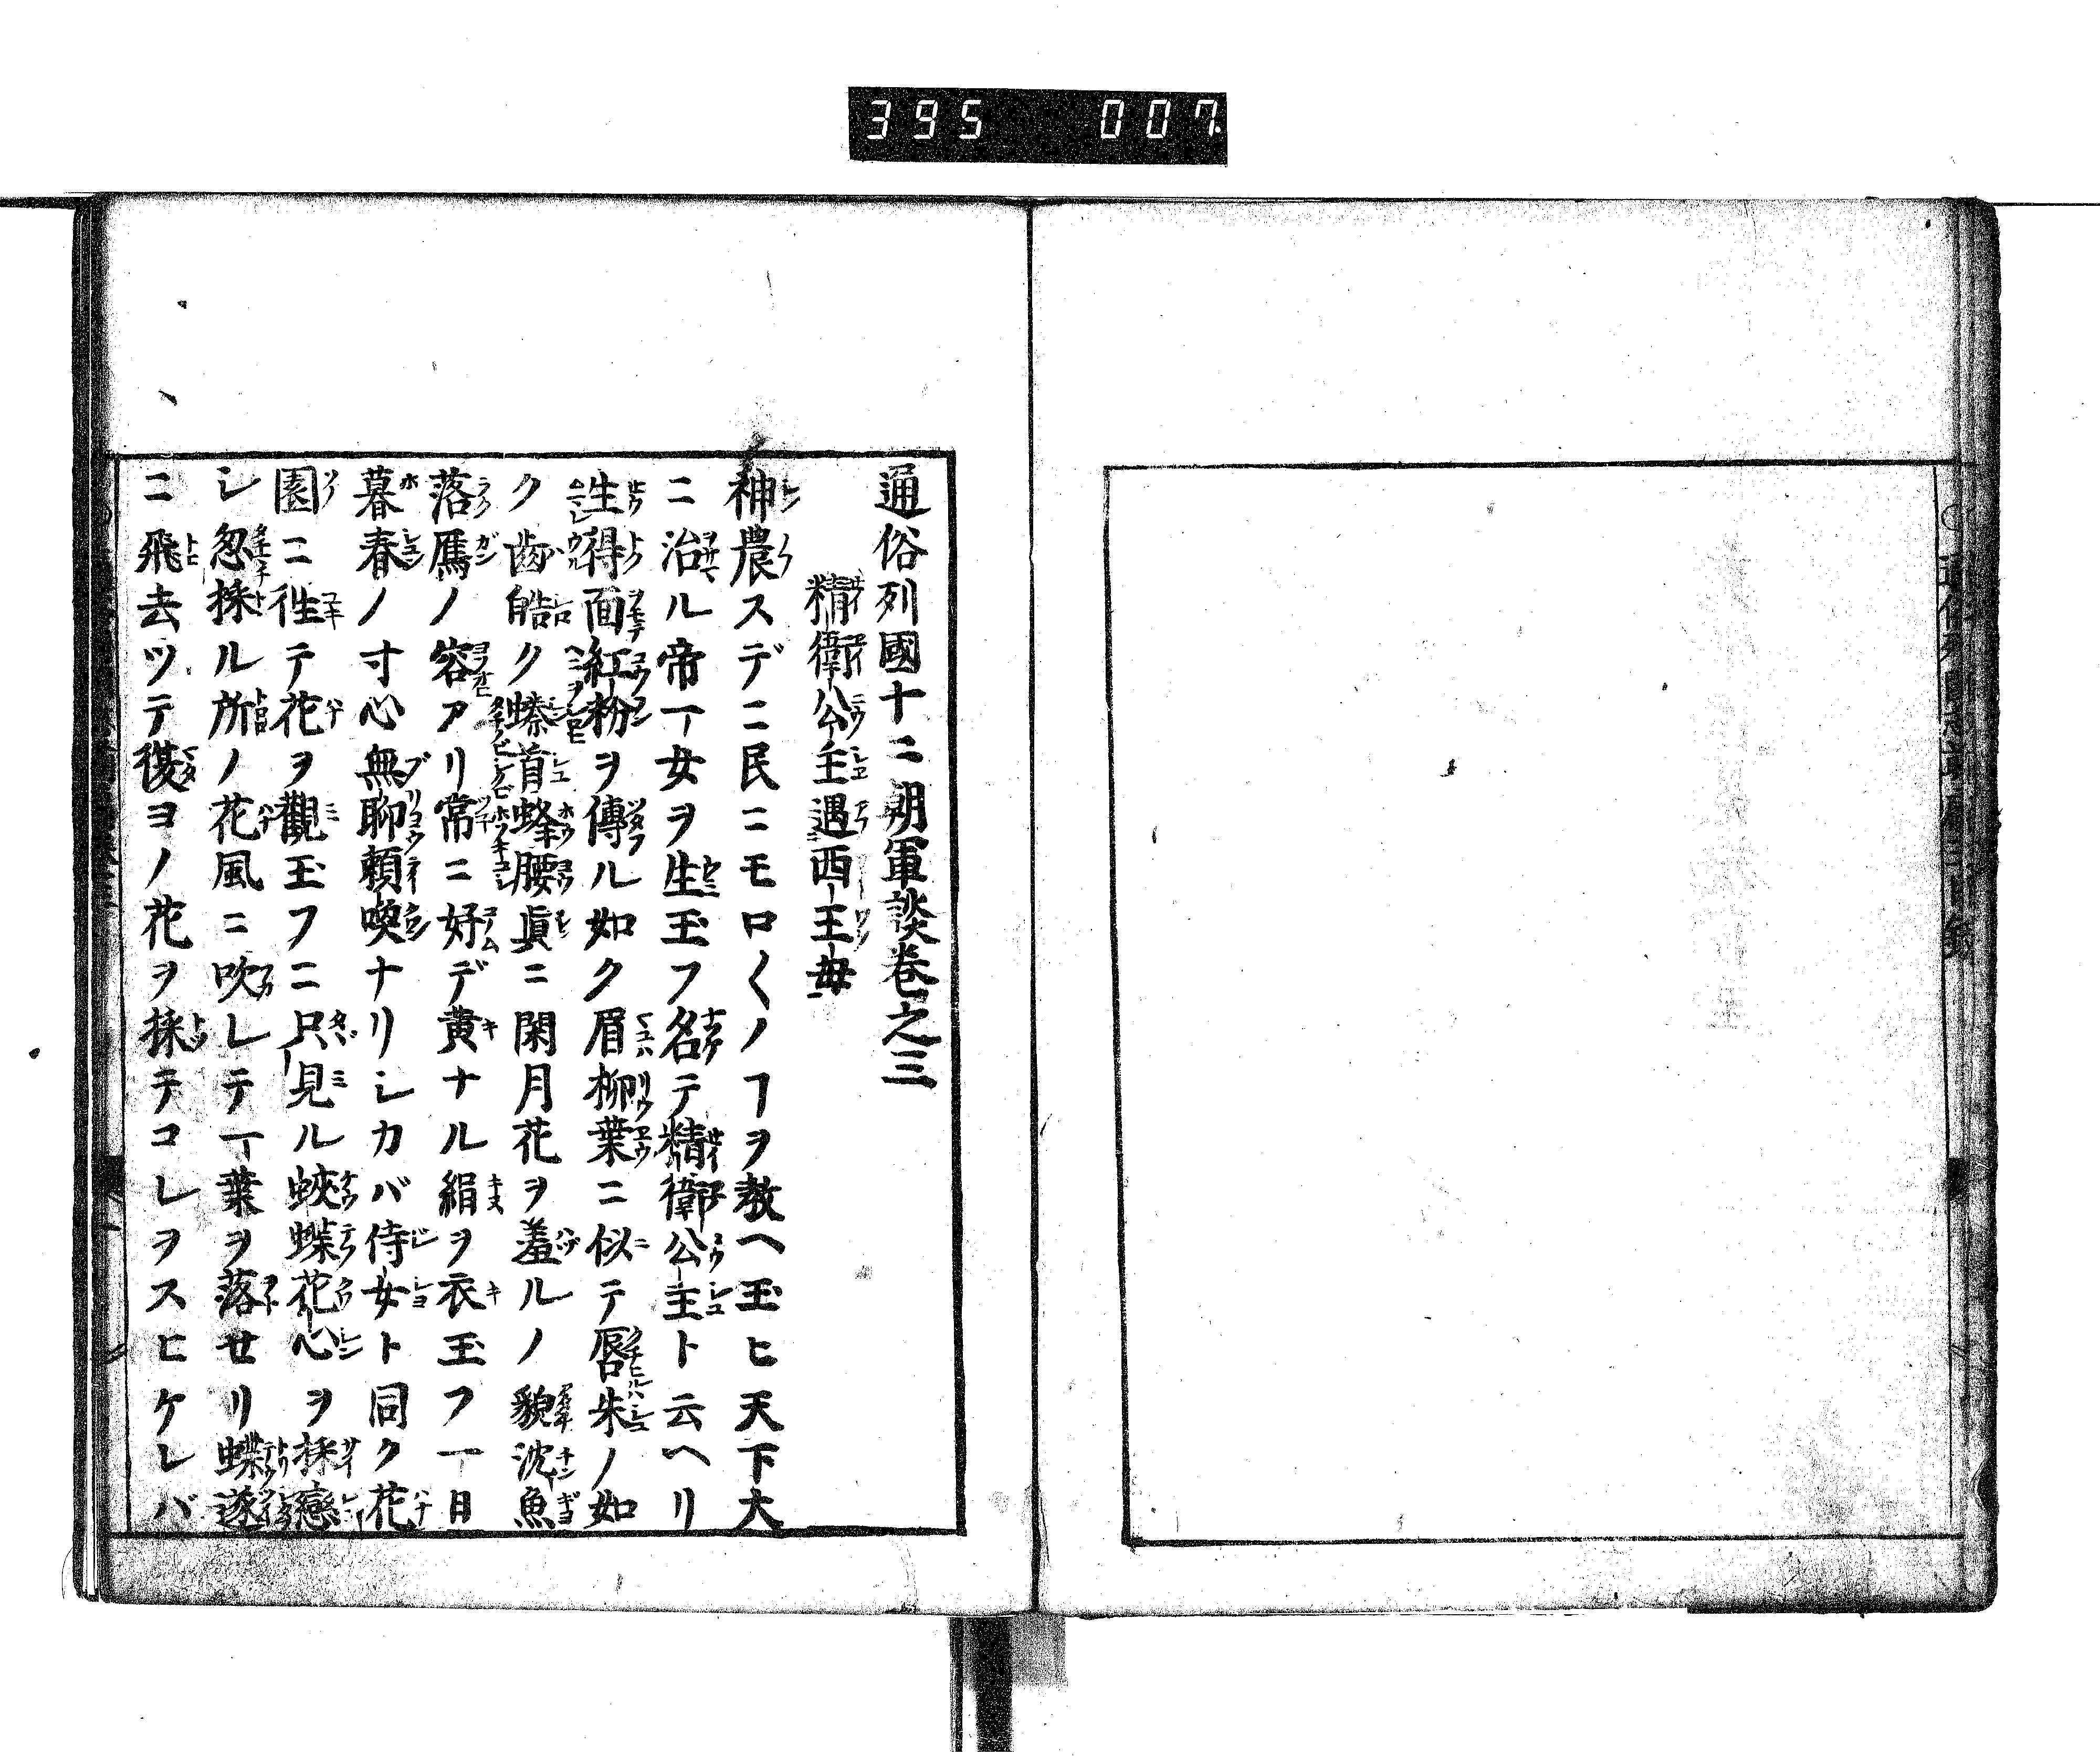 395 007
通俗列國十二朝軍談巻之三
精衛公主遇西王母
神農スデニ民ニモロ〱ノヿヲ教ヘ玉ヒ天下大
ニ治ル帝一女ヲ生玉フ名テ精衛公主ト云ヘリ
生得面紅粉ヲ傳ル如ク眉柳葉ニ似テ唇朱ノ如
ク歯皓ク螓首蜂腰眞ニ閑月花ヲ羞ルノ貌沈魚
落鴈ノ容アリ常ニ好デ黄ナル絹ヲ衣玉フ一日
暮春ノ寸心無聊頼喫ナリシカバ侍女ト同ク花
園ニ徃テ花ヲ觀玉フニ只見ル蛺蝶花心ヲ採戀
シ忽採ル所ノ花風ニ吹レテ一葉ヲ落セリ蝶遂
ニ飛去ツテ復ヨノ花ヲ採テコレヲスヒケレバ